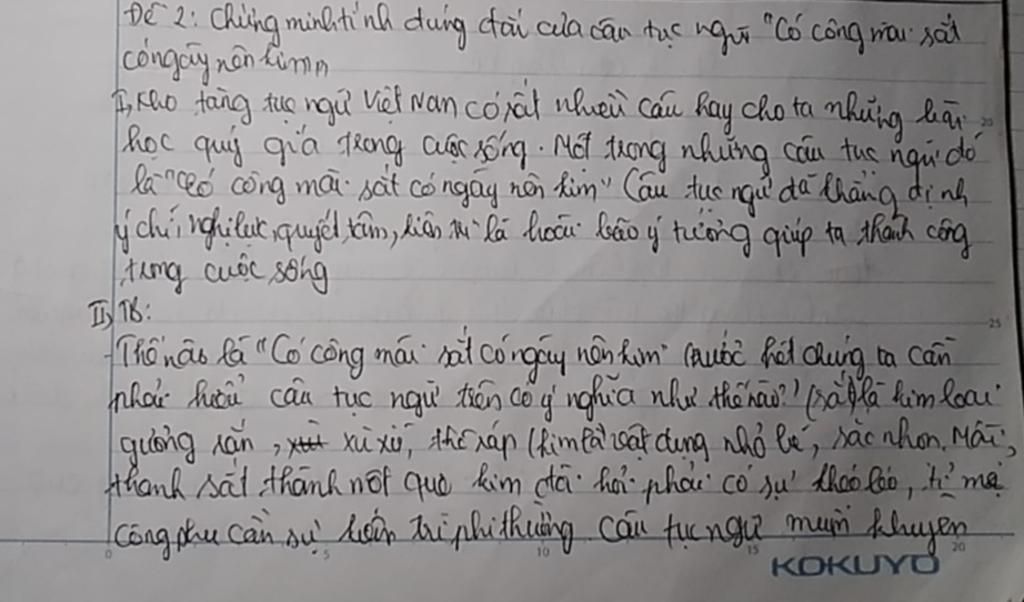 Đề 2: Chứng minh tính đúng đắn của câu tục ngữ "Có công mài sắt
có ngày nên kim"
I, Kho tàng tục ngữ Việt Nam có rất nhiều câu hay cho ta những bài
học quý giá trong cuộc sống. Một trong những câu tục ngữ đó
là "Có công mài sắt có ngày nên kim" Câu tục ngữ đã khẳng định
ý chí, nghị lực, quyết tâm, kiên trì là hoài bão lý tưởng giúp ta thành công
trong cuộc sống
II, TB:
- Thế nào là "Có công mài sắt có ngày nên kim" trước hết chúng ta cần
phải hiểu câu tục ngữ trên có ý nghĩa như thế nào? (sắt) là kim loại
cứng rắn, xù xì, thô ráp (kim) là vật dụng nhỏ bé, sắc nhọn. Mài
thanh sắt thành một que kim đòi hỏi phải có sự khéo léo, tỉ mỉ
công phu cần sự kiên trì phi thường Câu tục ngữ muốn khuyên
KOKUYO
0 5 10 15 20
20
25